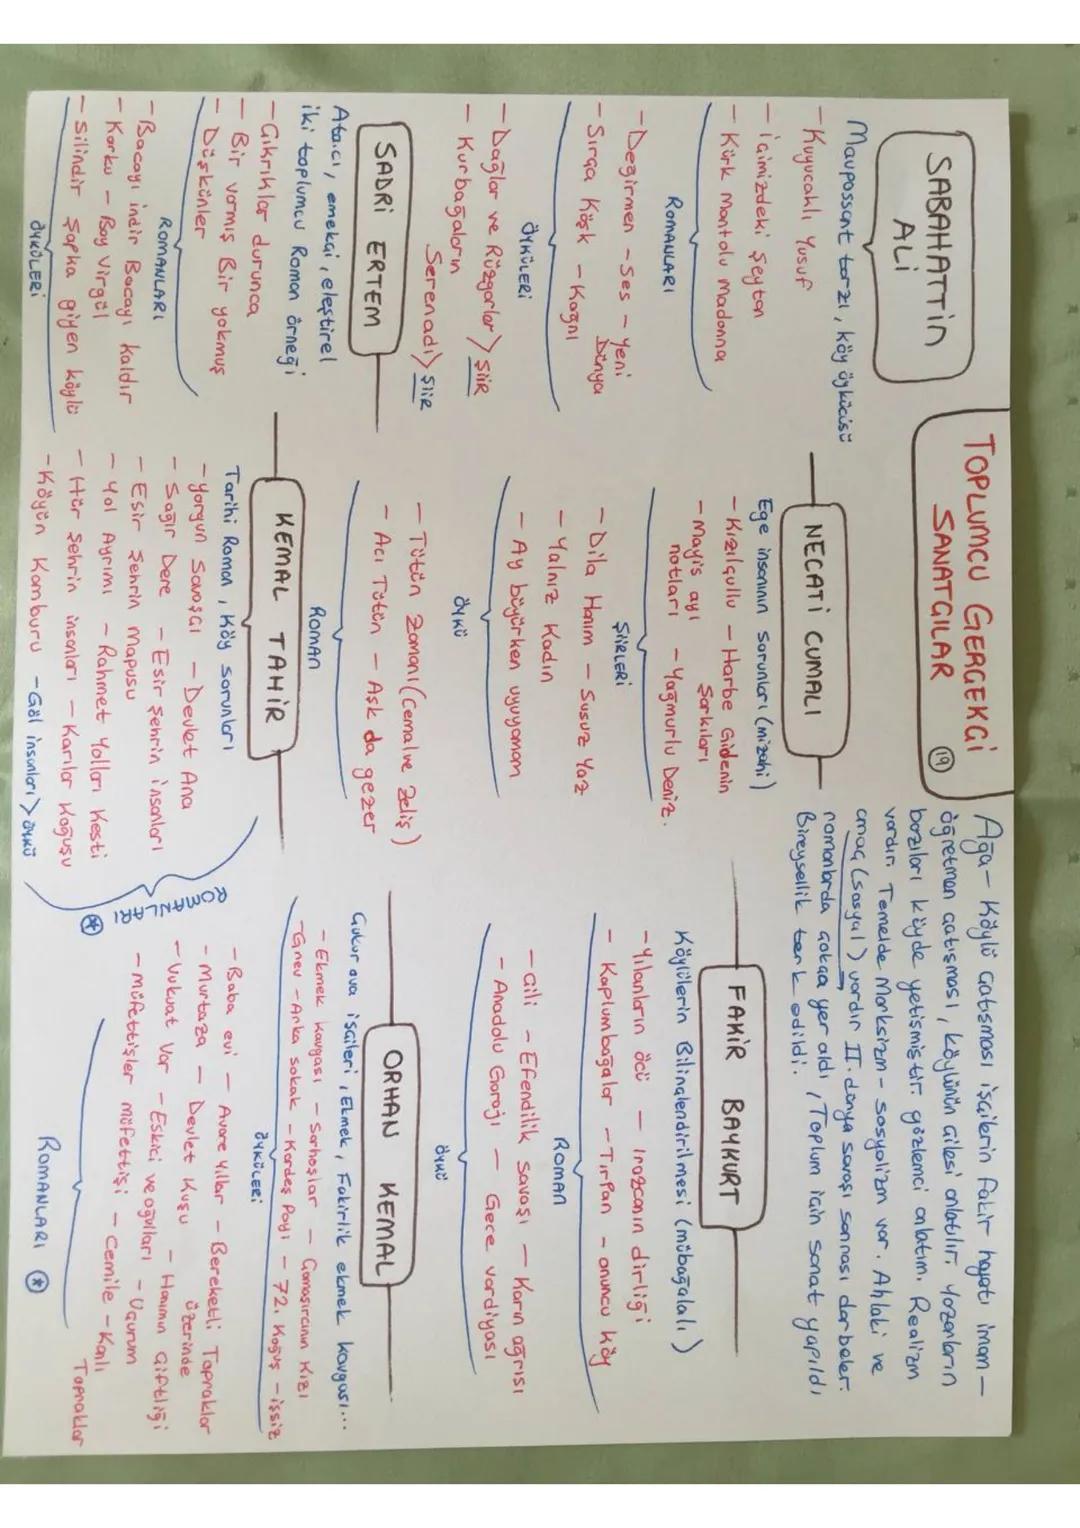 TOPLUMCU GERÇEKÇİ
SANATÇILAR (19)
Ağa - Köylü çatışması işçilerin fakir hayatı imam -
öğretmen çatışması, köylünün ailesi anlatılır. Yazarların
bazıları köyde yetişmiştir. gözlemci anlatım. Realizm
vardır. Temelde Marksizm - sosyalizm var. Ahlaki ve
amaç (sosyal) vardır II. dünya savaşı sonrası darbeler.
romanlarda çokça yer aldı, Toplum için sanat yapıldı,
Bireysellik terk edildi.
SABAHATTİN
ALİ
Maupossant tarzı, köy öykücüsü
- Kuyucaklı Yusuf
- İçimizdeki Şeytan
- Kürk Mantolu Madonna
ROMANLARI
- Değirmen - Ses - Yeni
Dünya
- Sırça Köşk - Kağnı
ÖYKÜLERİ
- Dağlar ve Rüzgarlar > ŞİİR
- Kurbağaların
Serenadı > ŞİİR
SADRİ ERTEM
Atacı, emekçi, eleştirel
iki toplumcu Roman örneği
- Çıkrıklar durunca
- Bir varmış Bir yokmuş
- Düşkünler
ROMANLARI
- Bacayı indir Bacayı kaldır
- Korku - Bay Virgül
- Silindir Şapka giyen köylü
ÖYKÜLERİ
NECATİ CUMALI
Ege insanının sorunları (mizahi)
- Kızılçullu - Harbe Gidenin
Şarkıları
- Mayıs ayı
notları - Yağmurlu Deniz.
ŞİİRLERİ
- Dila Hanım - Susuz Yaz
- Yalnız Kadın
- Ay büyürken uyuyamam
ÖYKÜ
- Tütün Zamanı (Cemal ve Zeliş)
- Acı Tütün - Aşk da gezer
ROMAN
KEMAL TAHİR
Tarihi Roman, Köy sorunları
- Yorgun Savaşçı - Devlet Ana
- Sağır Dere - Esir şehrin insanları
- Esir Şehrin Mapusu
- Yol Ayrımı - Rahmet Yolları Kesti
- Hür Şehrin insanları - Karılar Koğuşu
- Köyün Kamburu - Göl insanları > öykü
ROMANLARI
FAKİR BAYKURT
Köylülerin Bilinçlendirilmesi (mübağalalı)
- Yılanların öcü - Irazcanın dirliği
- Kaplumbağalar - Tırpan - onuncu Köy
ROMAN
- Çilli - Efendilik savaşı - Karın ağrısı
- Anadolu Garajı - Gece vardiyası
öykü
ORHAN KEMAL
Çukur ova işçileri, Ekmek, Fakirlik ekmek kavgası...
- Ekmek kavgası - Sarhoşlar - Çamaşırcının Kızı
- Grev - Arka sokak - Kardeş Payı - 72. Koğuş - işsiz
öyküleri
- Baba evi - Avare Yıllar - Bereketli Topraklar
Üzerinde
- Murtaza - Devlet Kuşu - Hanımın Çiftliği
- Vukuat Var - Eskici ve oğulları - Uçurum
- müfettişler müfettişi - Cemile - Kanlı
Topraklar
ROMANLARI